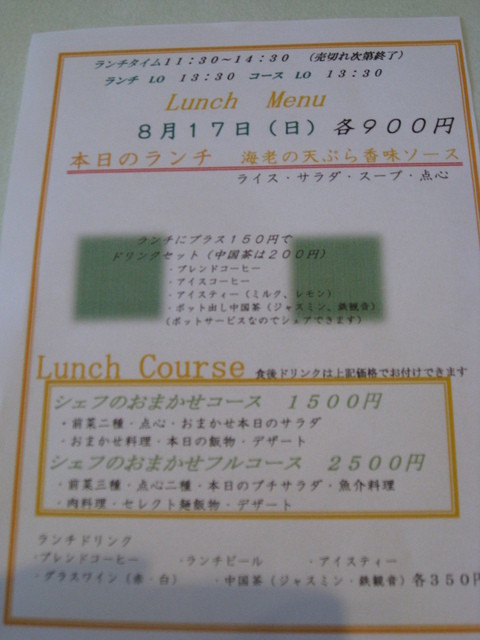 ランチタイム11:30~14:30 (売切れ次第終了)
ランチ LO 13:30 コース LO 13:30
Lunch Menu
8月17日(日) 各900円
本日のランチ 海老の天ぷら香味ソース
ライス・サラダ・スープ・点心
ランチにプラス150円で
ドリンクセット(中国茶は200円)
・ブレンドコーヒー
・アイスコーヒー
・アイスティー(ミルク、レモン)
・ポット出し中国茶(ジャスミン、鉄観音)
(ポットサービスなのでシェアできます)
Lunch Course 食後ドリンクは上記価格でお付けできます
シェフのおまかせコース 1500円
・前菜二種・点心・おまかせ本日のサラダ
・おまかせ料理・本日の飯物・デザート
シェフのおまかせフルコース 2500円
・前菜三種・点心二種・本日のプチサラダ・魚介料理
・肉料理・セレクト麺飯物・デザート
ランチドリンク
・ブレンドコーヒー ・ランチビール ・アイスティー
・グラスワイン(赤・白) ・中国茶(ジャスミン・鉄観音)各350円